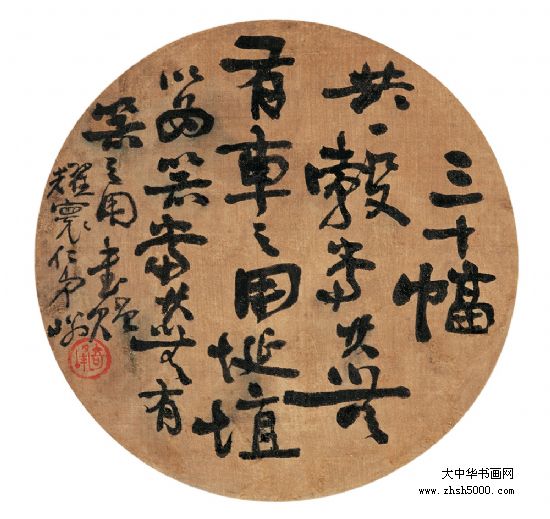 三十幅
共一轂當其無
有車之用埏埴
以為器當其無有
器之用書
耀寰仁弟
大中华书画网
www.zhsh5000.com